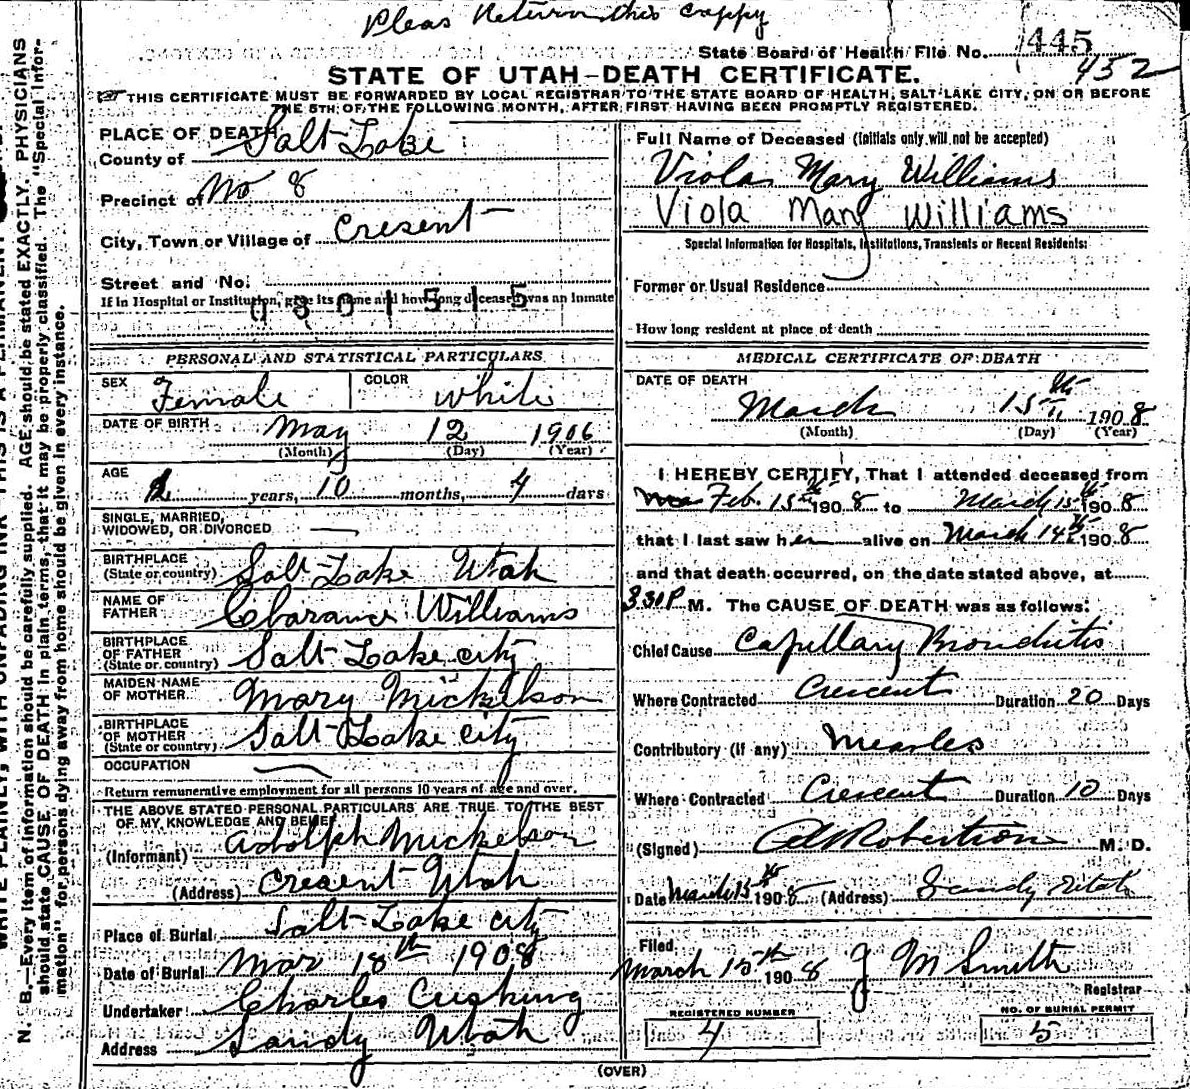 Pleas Return this coppy
State Board of Health File No. 445
452
STATE OF UTAH—DEATH CERTIFICATE.
THIS CERTIFICATE MUST BE FORWARDED BY LOCAL REGISTRAR TO THE STATE BOARD OF HEALTH, SALT LAKE CITY, ON OR BEFORE
THE 5TH OF THE FOLLOWING MONTH, AFTER FIRST HAVING BEEN PROMPTLY REGISTERED.
PLACE OF DEATH
County of Salt Lake
Precinct of No 8
City, Town or Village of Cresent
Street and No.
If in Hospital or Institution, give its name and how long deceased was an inmate
0801515
PERSONAL AND STATISTICAL PARTICULARS
SEX Female COLOR White
DATE OF BIRTH May 12 1906
(Month) (Day) (Year)
AGE 1 years, 10 months, 4 days
SINGLE, MARRIED,
WIDOWED, OR DIVORCED —
BIRTHPLACE
(State or country) Salt Lake Utah
NAME OF
FATHER Clarance Williams
BIRTHPLACE
OF FATHER
(State or country) Salt Lake city
MAIDEN NAME
OF MOTHER Mary Mickelson
BIRTHPLACE
OF MOTHER
(State or country) Salt Lake city
OCCUPATION —
Return remunerative employment for all persons 10 years of age and over.
THE ABOVE STATED PERSONAL PARTICULARS ARE TRUE TO THE BEST
OF MY KNOWLEDGE AND BELIEF
(Informant) Adolph Mickelson
(Address) Cresent Utah
Place of Burial Salt Lake city
Date of Burial Mar 18th 1908
Undertaker Charles Cushing
Address Sandy Utah
Full Name of Deceased (Initials only will not be accepted)
Viola Mary Williams
Viola Mary Williams
Special Information for Hospitals, Institutions, Transients or Recent Residents:
Former or Usual Residence
How long resident at place of death
MEDICAL CERTIFICATE OF DEATH
DATE OF DEATH
March 15th 1908
(Month) (Day) (Year)
I HEREBY CERTIFY, That I attended deceased from
Feb. 15th 1908 to March 15th 1908
that I last saw her alive on March 14th 1908
and that death occurred, on the date stated above, at
3 30 P. M. The CAUSE OF DEATH was as follows:
Chief Cause Capillary Bronchitis
Where Contracted Crescent Duration 20 Days
Contributory (If any) Mearles
Where Contracted Crescent Duration 10 Days
(Signed) Robertson M. D.
Date March 15th 1908 (Address) Sandy Utah
Filed
March 15th 1908 J M Smith
Registrar
REGISTERED NUMBER
4
NO. OF BURIAL PERMIT
5
(OVER)
N. B.—Every item of information should be carefully supplied. AGE should be stated EXACTLY. PHYSICIANS
should state CAUSE OF DEATH in plain terms, that it may be properly classified. The "Special Infor-
mation" for persons dying away from home should be given in every instance.